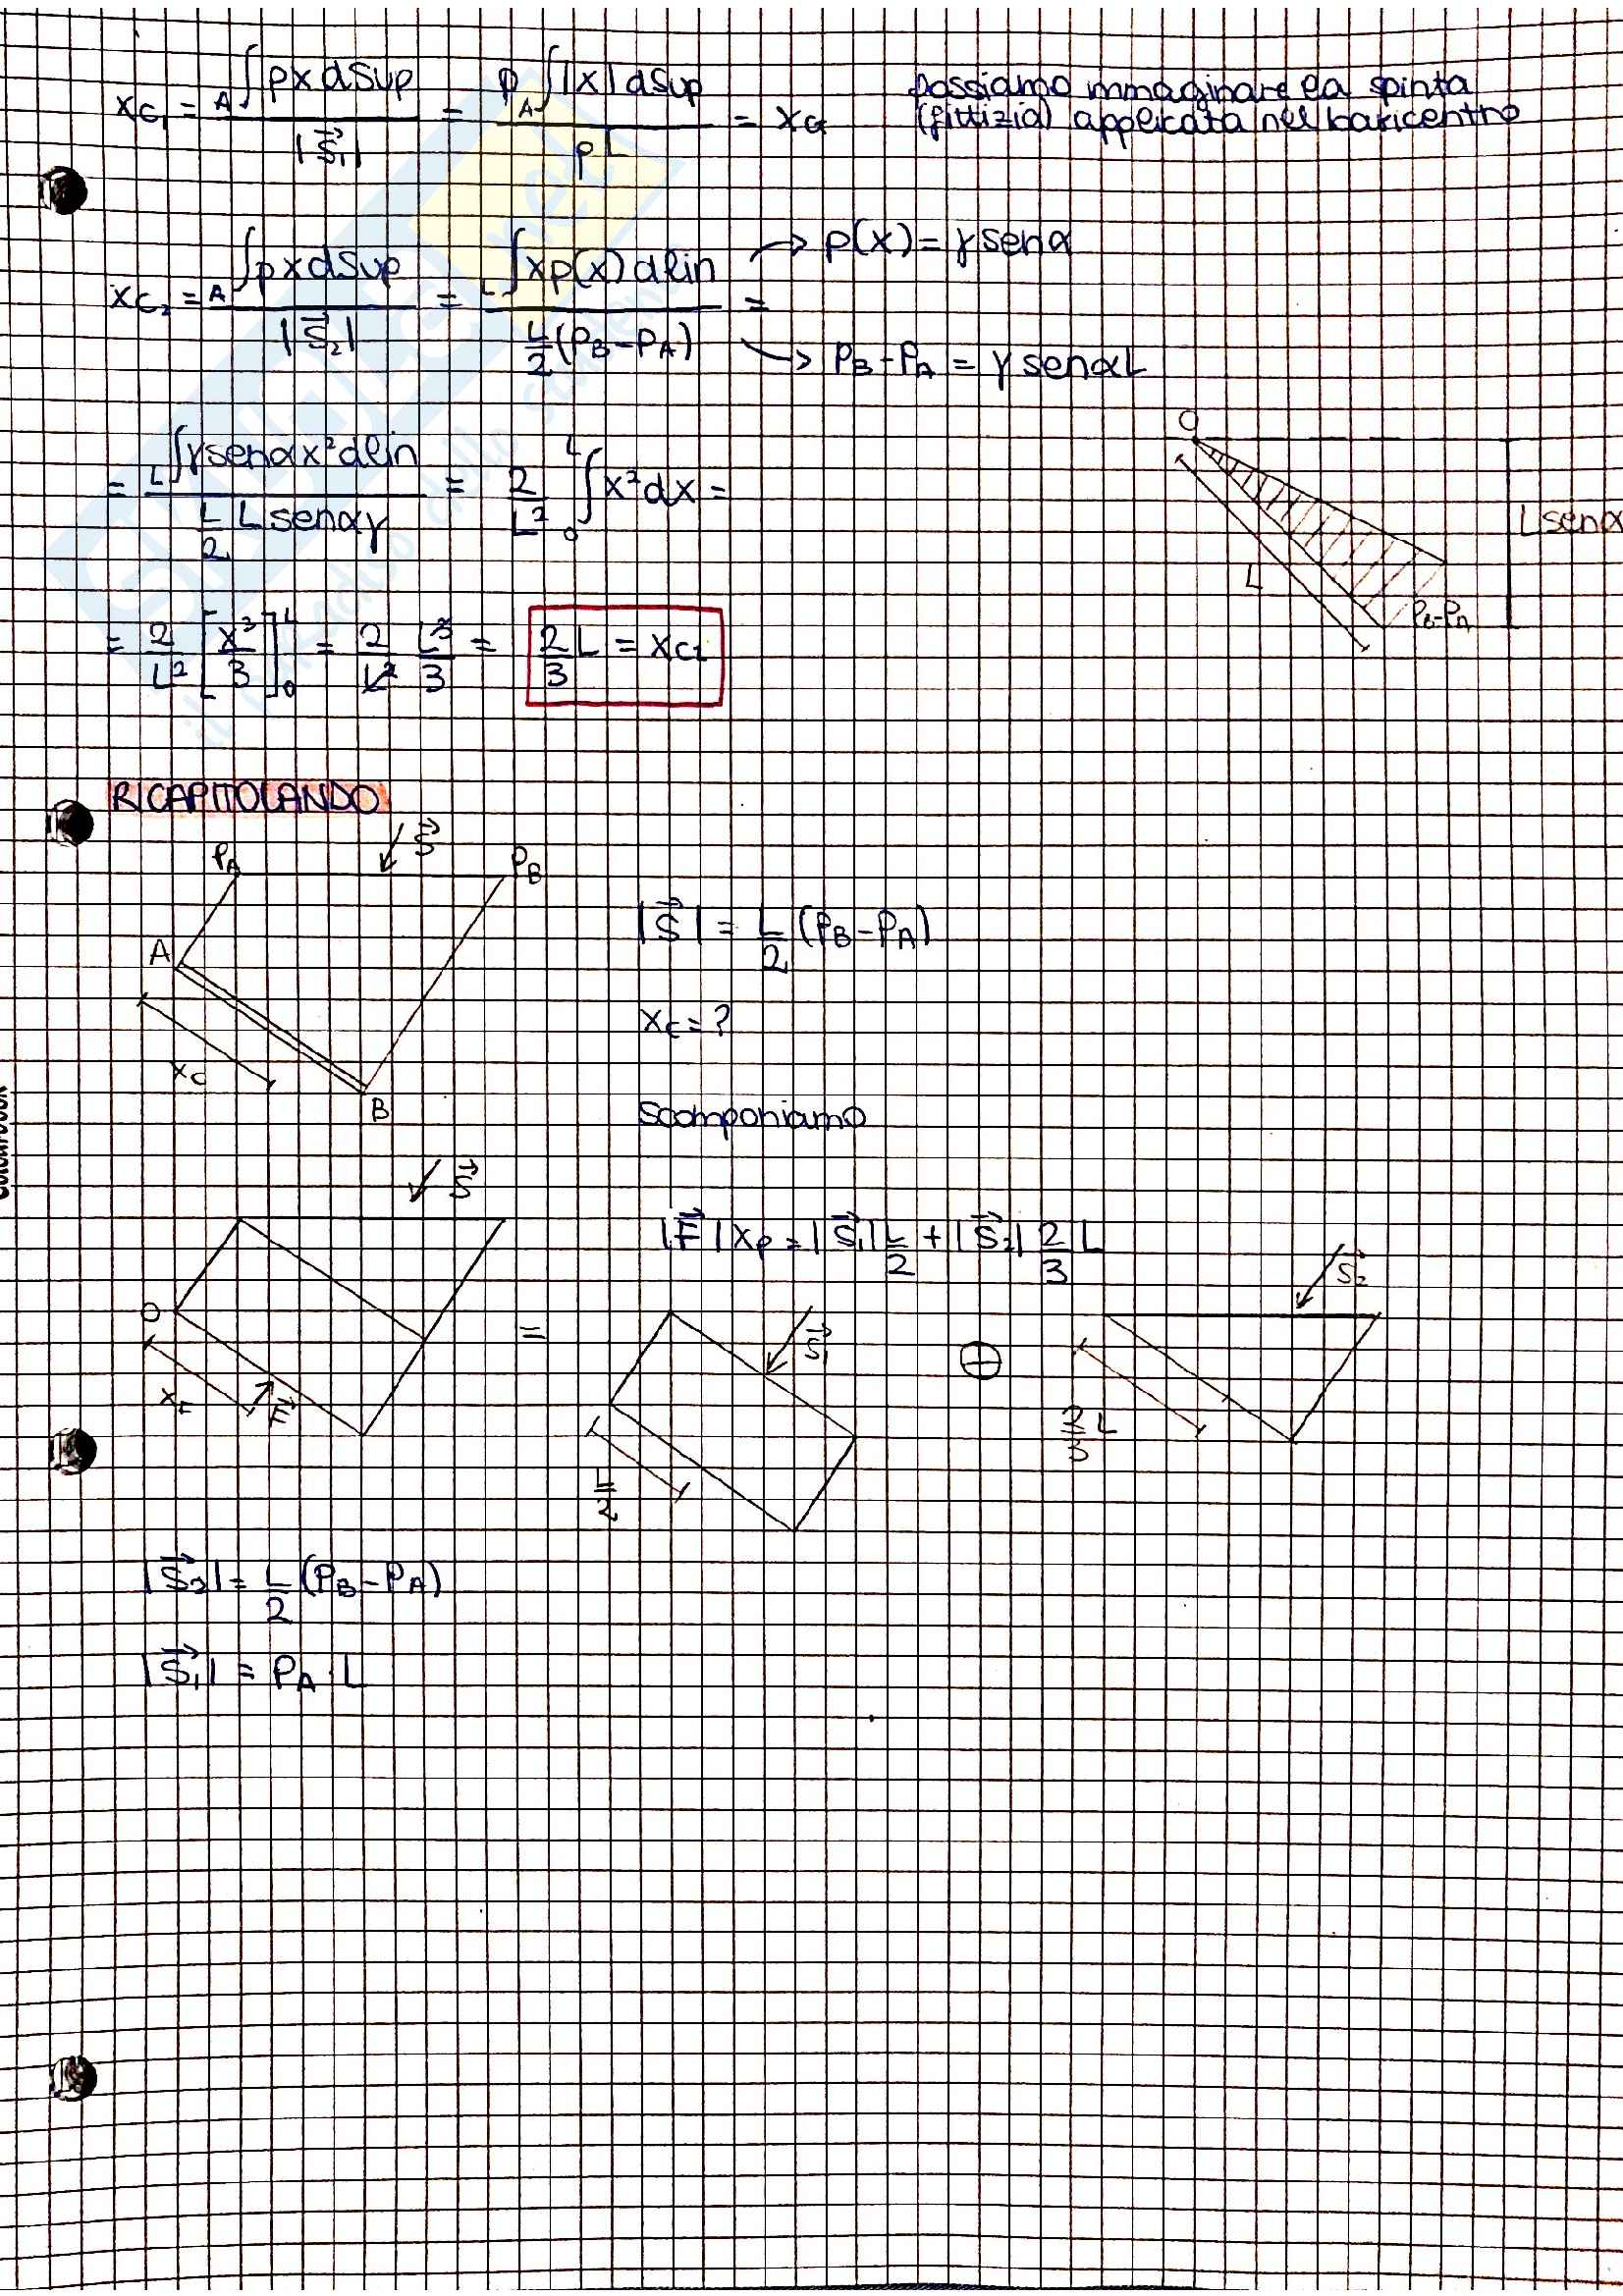 x_{C_1} = \frac{_A∫ p x dSup}{|\vec{S_1}|} = \frac{p _A∫ |x| dSup}{p L} = x_G possiamo immaginare la spinta
(fittizia) applicata nel baricentro
x_{C_2} = \frac{_A∫ p x dSup}{|\vec{S_2}|} = \frac{_L∫ x p(x) dlin}{\frac{L}{2}(p_B - p_A)} =
→ p(x) = γ senα
→ p_B - p_A = γ senα L
= \frac{_L∫ γ senα x² dlin}{\frac{L}{2} L senα γ} = \frac{2}{L²} ∫_0^L x² dx =
O
L
L senα
p_B - p_A
= \frac{2}{L²} [\frac{x³}{3}]_0^L = \frac{2}{L²} \frac{L³}{3} = \frac{2}{3} L = x_{C_2}
RICAPITOLANDO
\vec{S}
p_A
p_B
A
B
x_C
|\vec{S}| = \frac{L}{2} (p_B - p_A)
x_C = ?
Scomponiamo
\vec{S}
|\vec{F}| x_P = |\vec{S_1}| \frac{L}{2} + |\vec{S_2}| \frac{2}{3} L
O
x_F
\vec{F}
=
\vec{S_1}
\frac{L}{2}
\vec{S_2}
\frac{2}{3} L
|\vec{S_2}| = \frac{L}{2} (p_B - p_A)
|\vec{S_1}| = p_A · L